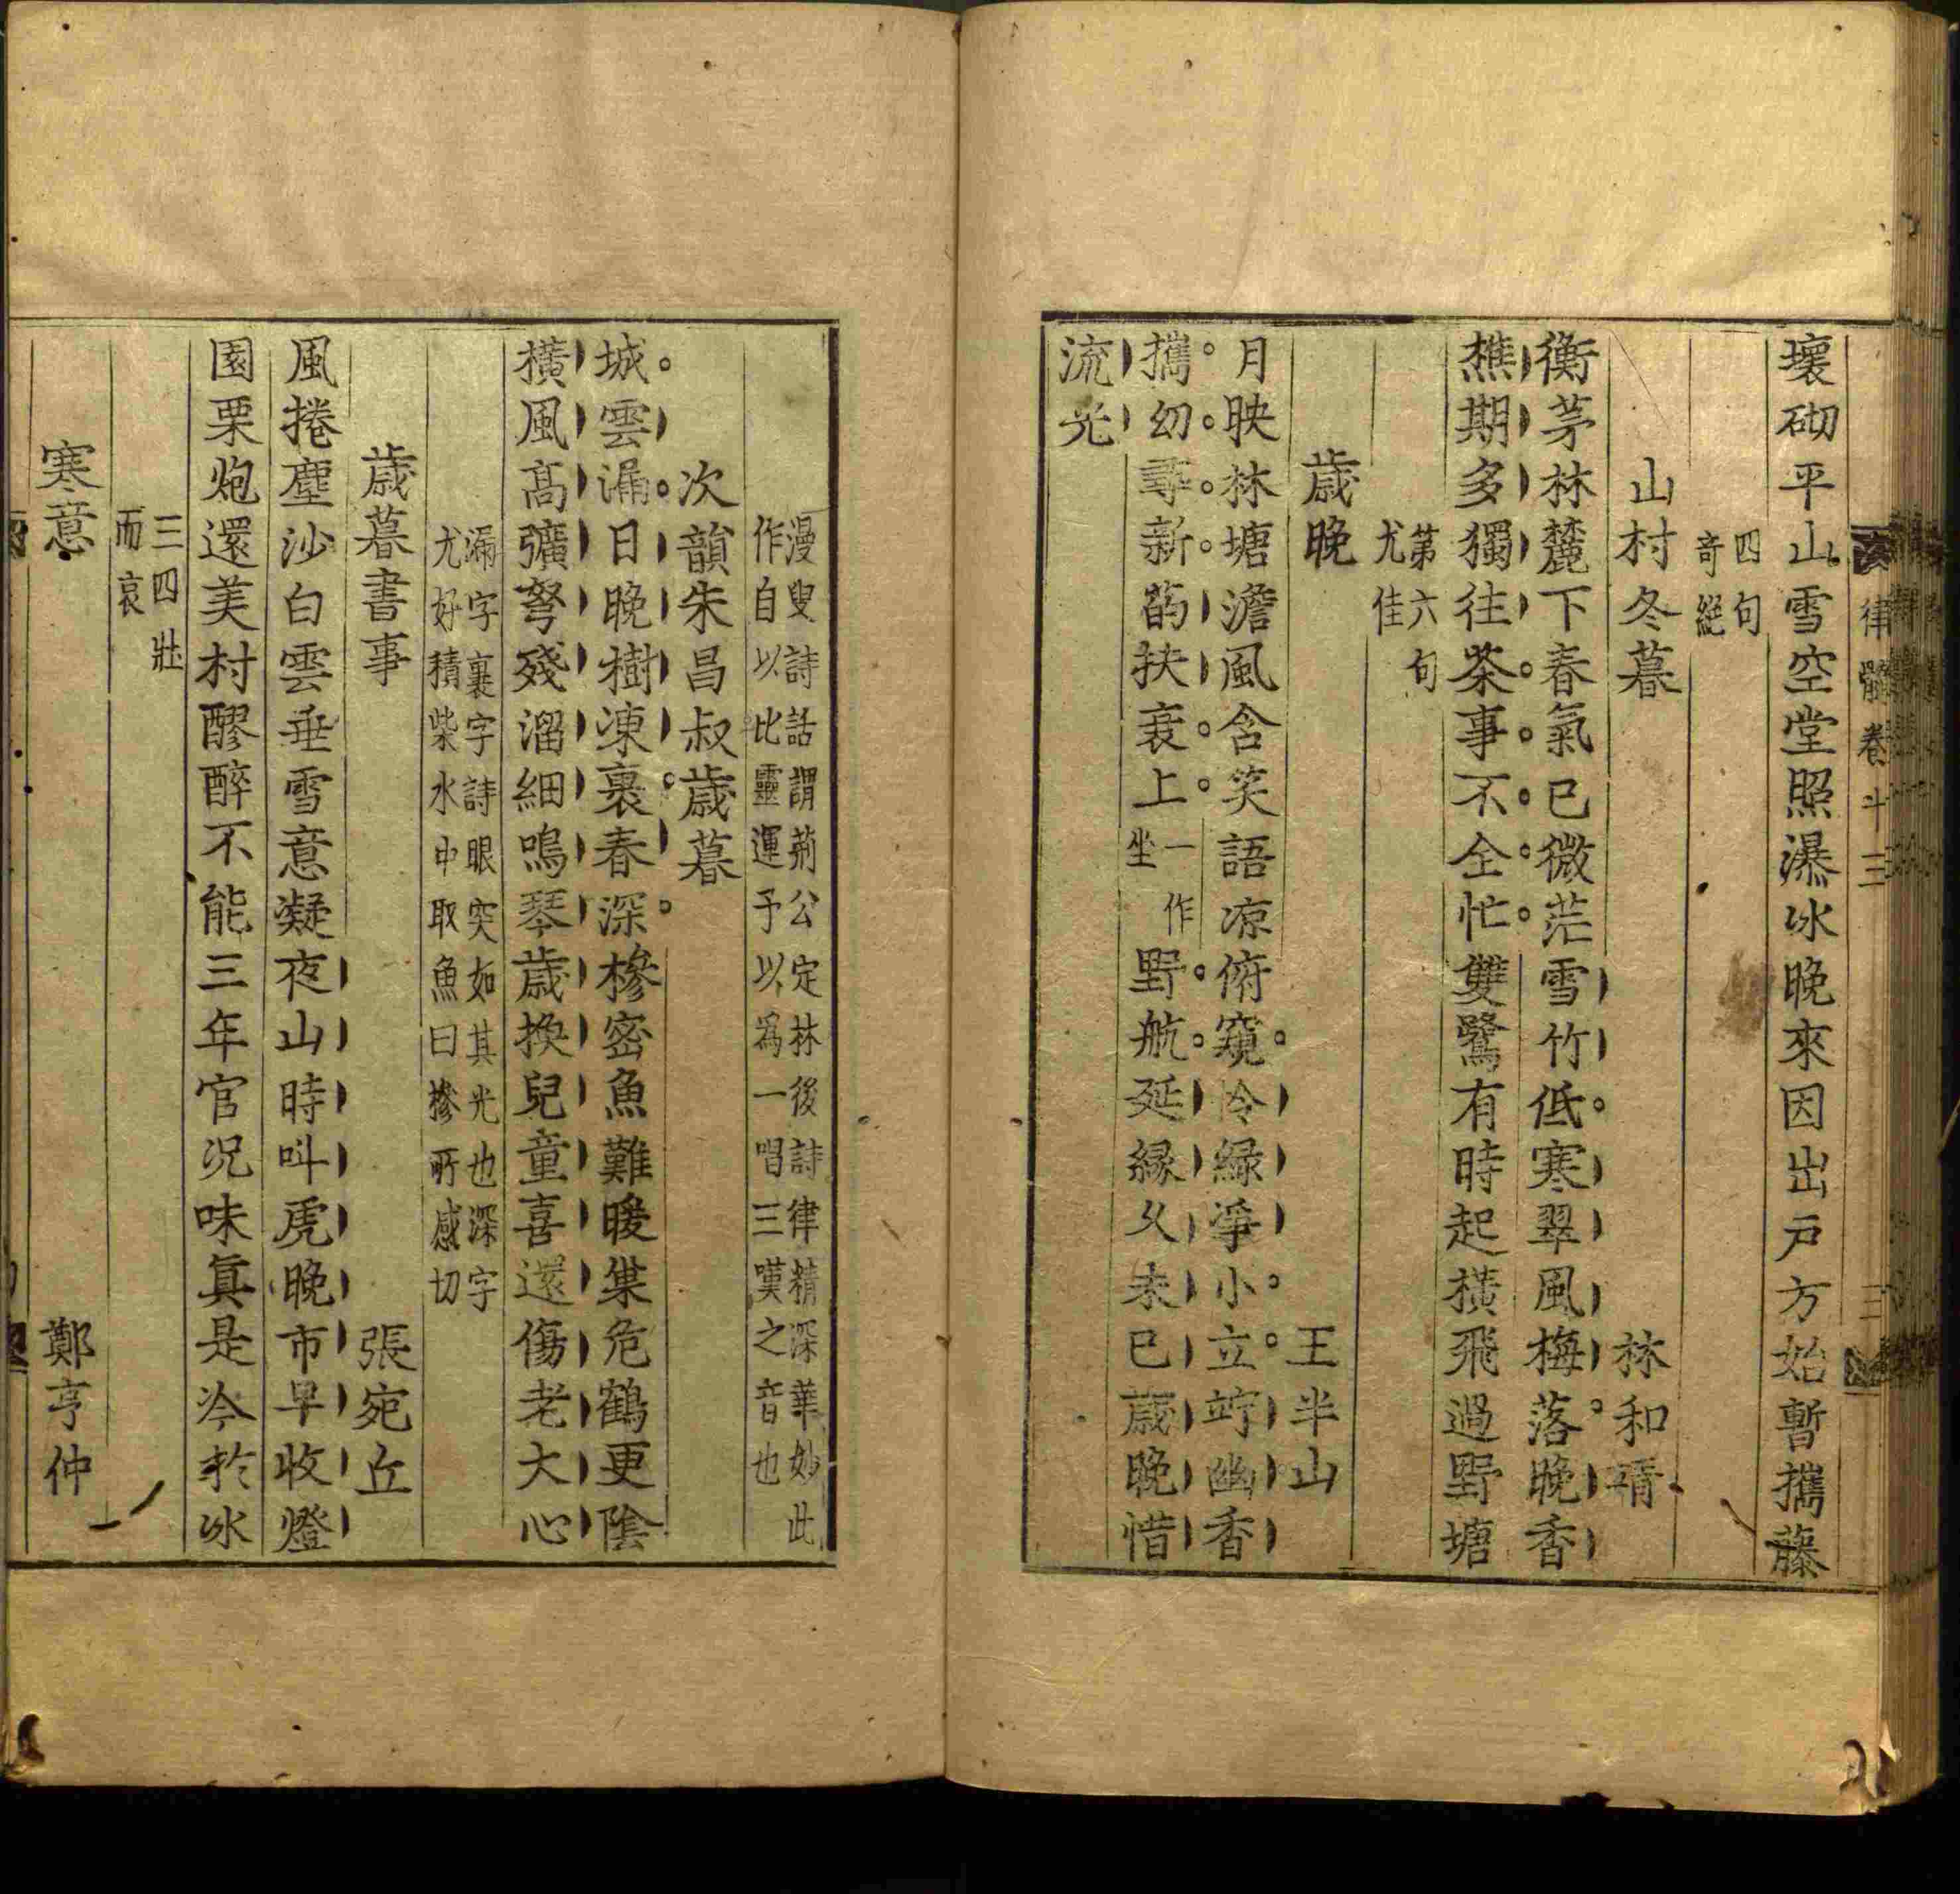 律髓卷十三
三
壞砌平山雪空堂照瀑冰晚來因出戶方始暫攜藤
四句
奇絕
山村冬暮
林和靖
衡茅林麓下春氣已微茫雪竹低寒翠風梅落晚香
樵期多獨往茶事不全忙雙鷺有時起橫飛過野塘
第六句
尤佳
歲晚
王半山
月映林塘澹風含笑語凉俯窺冷緑淨小立竚幽香
攜幼尋新菂扶衰上
一作
坐
野航延縁久未已歲晚惜
流光
漫叟詩話謂荊公定林後詩律精深華妙此
作自以比靈運予以爲一唱三嘆之音也
次韻朱昌叔歲暮
城雲漏日晚樹凍裹春深槮密魚難暖巢危鶴更陰
橫風高彍弩殘溜細鳴琴歲換兒童喜還傷老大心
漏字裹字詩眼突如其光也深字
尤好積柴水中取魚曰槮所感切
歲暮書事
張宛丘
風捲塵沙白雲垂雪意凝夜山時呌虎晚市早收燈
園栗炮還美村醪醉不能三年官况味眞是冷於冰
三四壯
而哀
寒意
鄭亨仲